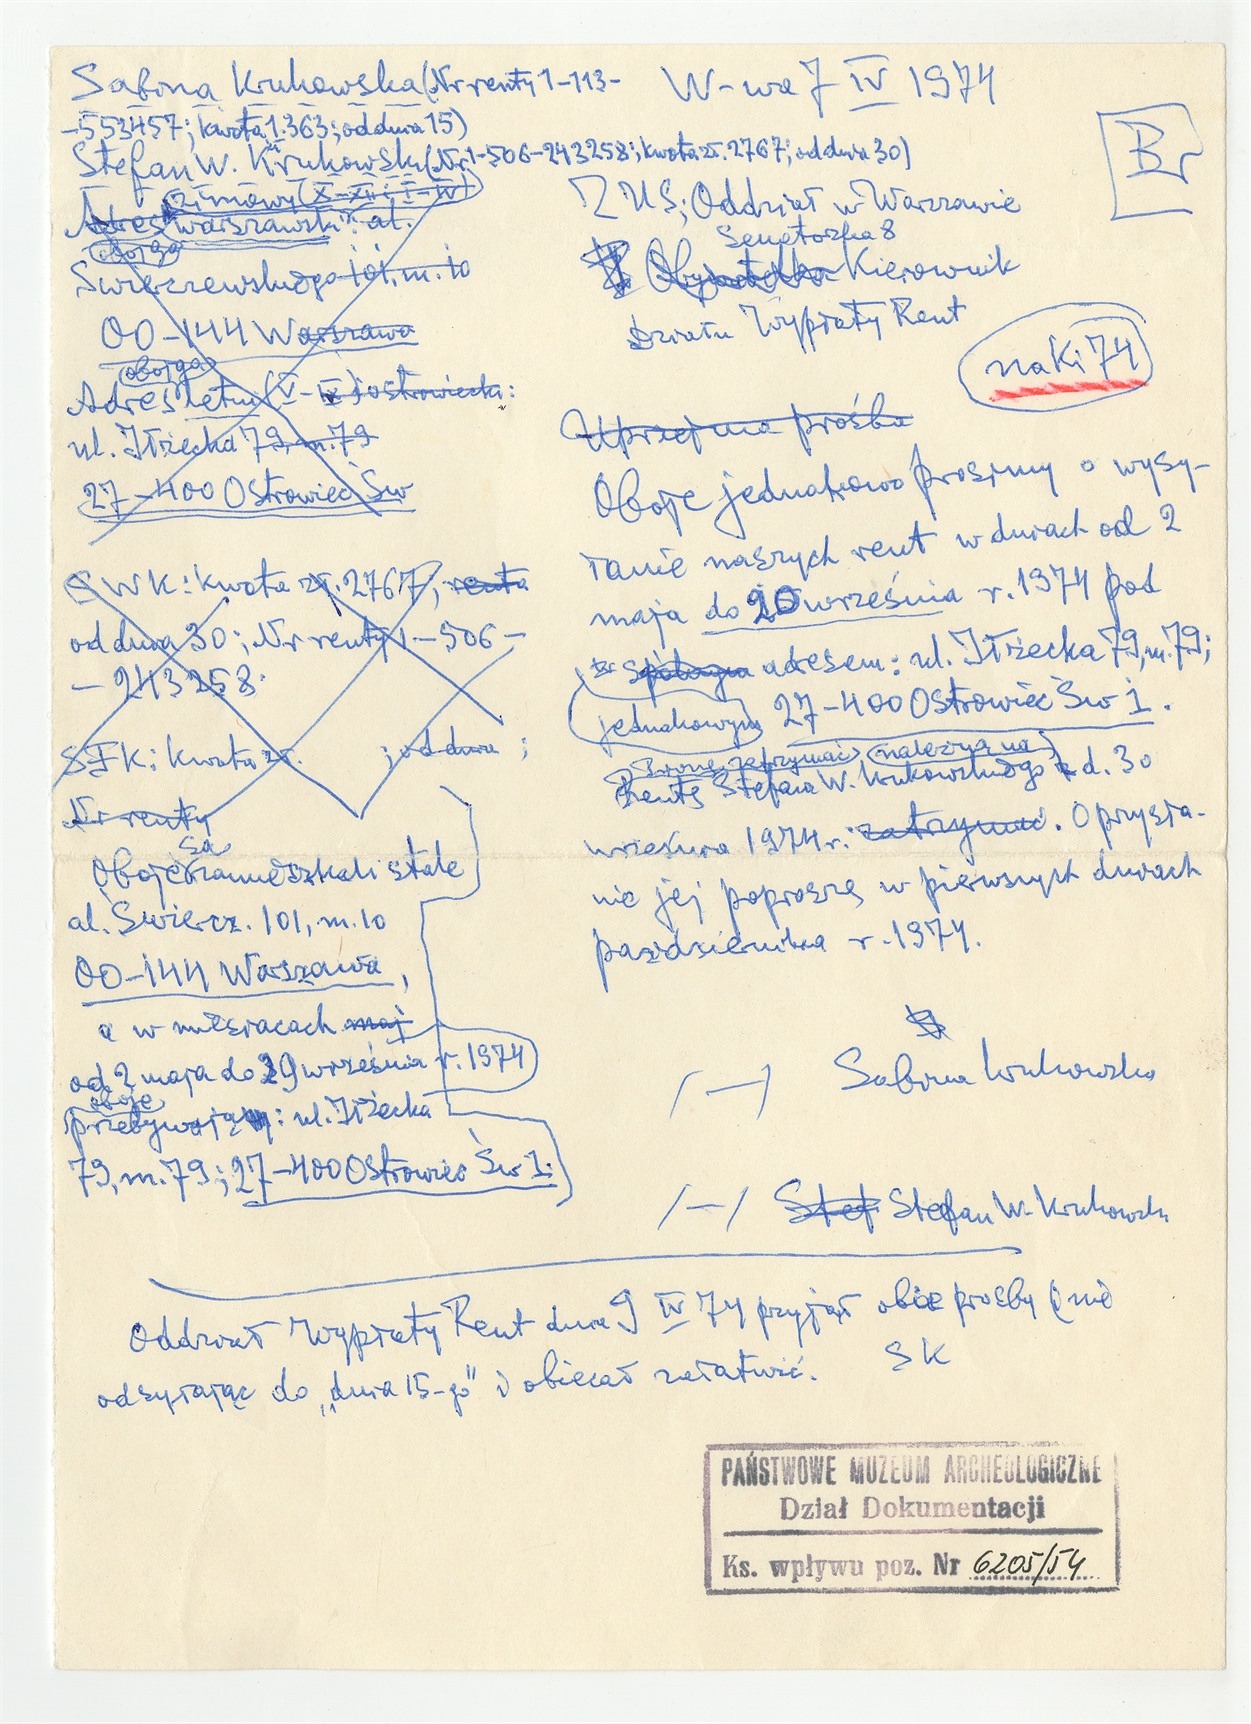 Sabina Krukowska (Nr renty 1-113-
-553457; kwota 1.363; od dnia 15)
Stefan W. Krukowski (Nr 1-506-243258; kwota zł. 2767; od dnia 30)
W-wa 7 IV 1974
Br
zimowy (X-XII i I-IV)
Adres warszawski: al.
obojga
Świerczewskiego 101, m. 10
00-144 Warszawa
obojga
Adres letni (V-IX) ostrowiecki:
ul. Iłżecka 79, m. 79
27-400 Ostrowiec Św
SWK: kwota zł. 2767; renta
od dnia 30; Nr renty 1-506-
-243258.
SFK: kwota zł. ; od dnia ;
Nr renty
są
Oboje zamieszkali stale
al. Świercz. 101, m. 10
00-144 Warszawa,
a w miesiącach maj
od 2 maja do 29 września r. 1974
oboje
przebywają: ul. Iłżecka
79, m. 79; 27-400 Ostrowiec Św 1.
ZUS; Oddział w Warszawie
Senatorska 8
Obywatelka Kierownik
Działu Wypłaty Rent
naKi 74
Uprzejma prośba
Oboje jednakowo prosimy o wysy-
łanie naszych rent w dniach od 2
maja do 20 września r. 1974 pod
adresem: ul. Iłżecka 79, m. 79;
jednakowym 27-400 Ostrowiec Św 1.
Proszę zatrzymać należną na
Rentę Stefana W. Krukowskiego d. 30
września 1974 r. zatrzymać. O przysła-
nie jej poproszę w pierwszych dniach
października r. 1974.
/—/ Sabina Krukowska
/—/ Stef Stefan W. Krukowski
Oddział Wypłaty Rent dnia 9 IV 74 przyjął obie prośby (nie
odsyłając do "dnia 15-go" i obiecał załatwić. SK
PAŃSTWOWE MUZEUM ARCHEOLOGICZNE
Dział Dokumentacji
Ks. wpływu poz. Nr 6205/54